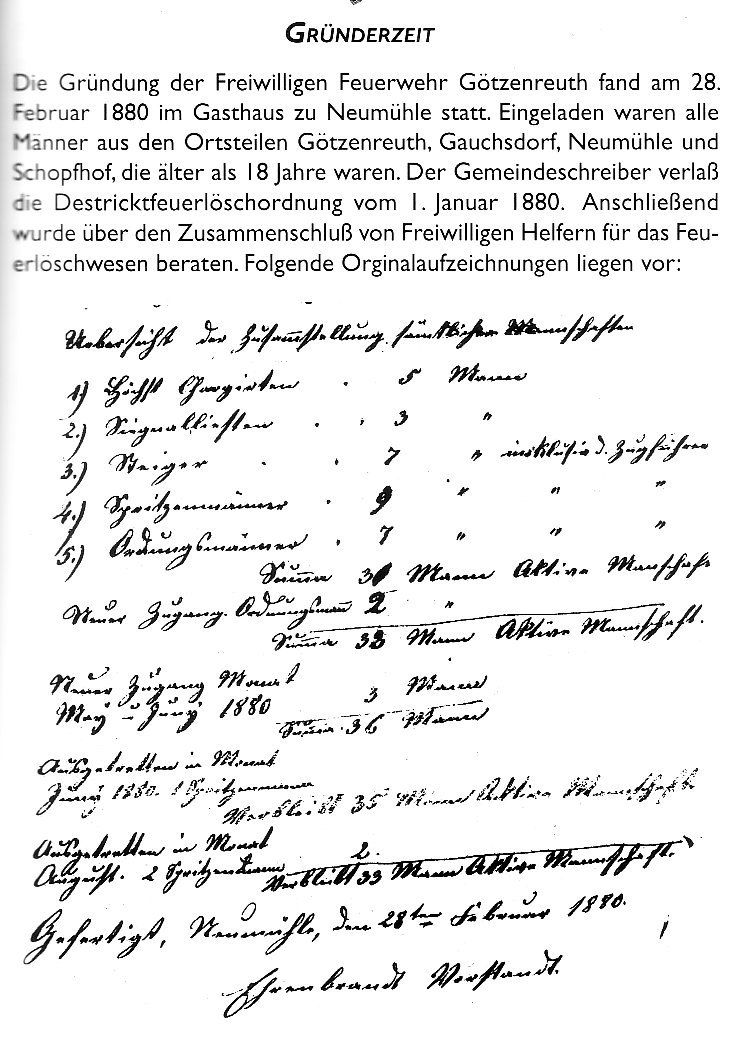 GRÜNDERZEIT
Die Gründung der Freiwilligen Feuerwehr Götzenreuth fand am 28.
Februar 1880 im Gasthaus zu Neumühle statt. Eingeladen waren alle
Männer aus den Ortsteilen Götzenreuth, Gauchsdorf, Neumühle und
Schopfhof, die älter als 18 Jahre waren. Der Gemeindeschreiber verlaß
die Destricktfeuerlöschordnung vom 1. Januar 1880. Anschließend
wurde über den Zusammenschluß von Freiwilligen Helfern für das Feu-
erlöschwesen beraten. Folgende Orginalaufzeichnungen liegen vor:
Uebersicht der Zusammstellung sämtlicher Mannschaften
1.) Höchst Chargirten . 5 Mann
2.) Signalliesten . . 3 "
3.) Steiger . . 7 " inklusiv d. Zugführer
4.) Spritzenmänner . 9 " " "
5.) Ordungsmänner . 7 " " "
Summa 31 Mann Aktive Manschaft
Neuer Zugang. Ordnungsmann 2 "
Summa 33 Mann Aktive Mannschaft.
Neuer Zugang Monat
May u Juny 1880 3 Mann
Summa. 36 Mann
Ausgetretten in Monat
Juny 1880. 1 Spritzenmann
Verbleibt 35 Mann Aktive Mannschaft.
Ausgetretten in Monat
August. 2 Spritzenmann 2.
Verbleibt 33 Mann Aktive Mannschaft.
Gefertigt, Neumühle, den 28ten Februar 1880.
Ehrenbrandt Vorstandt.